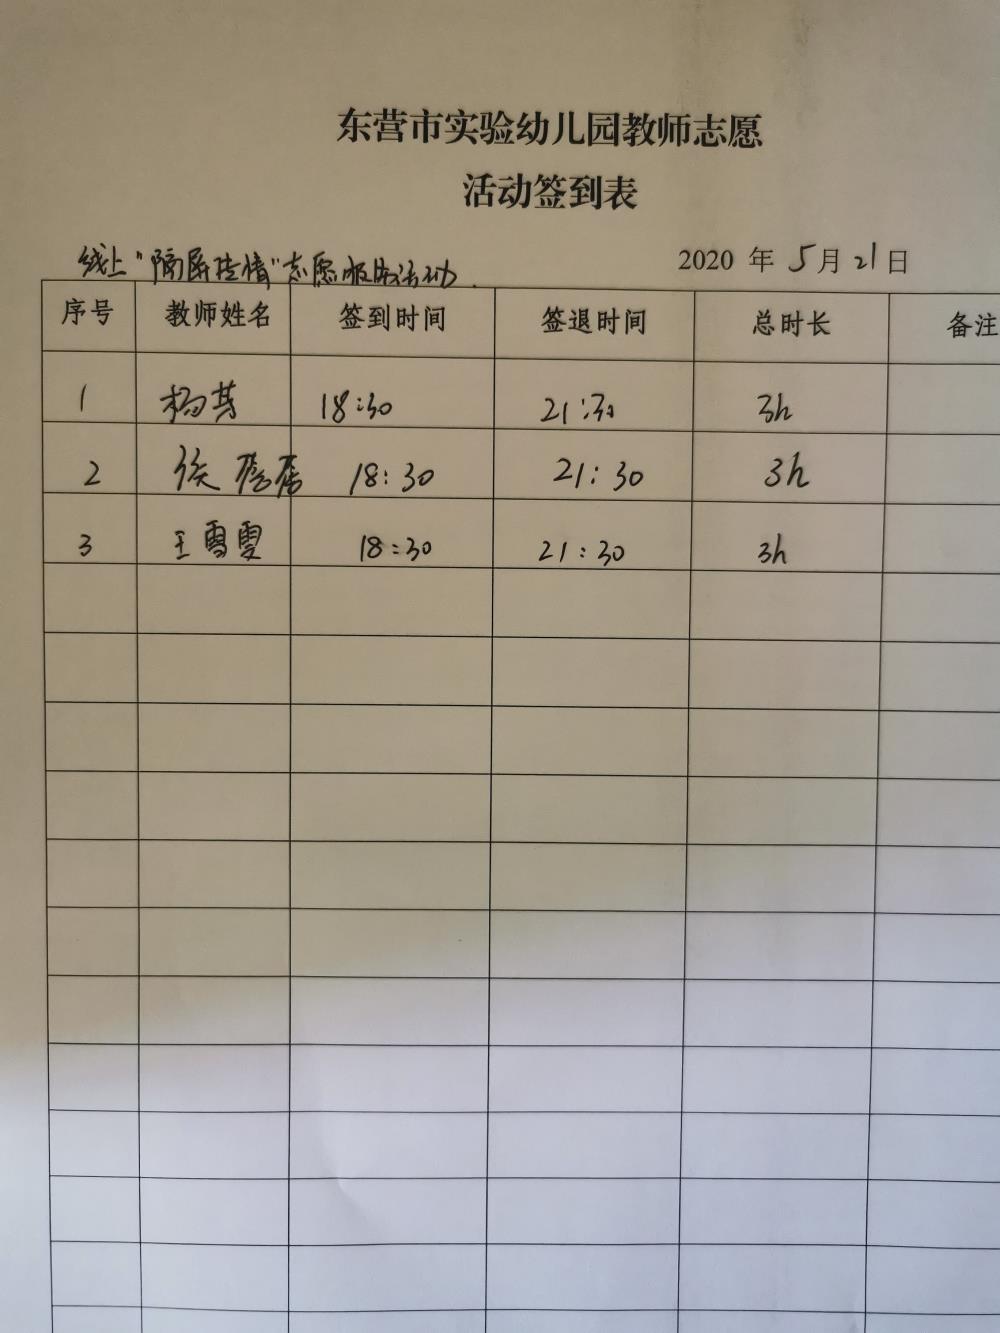 东营市实验幼儿园教师志愿
活动签到表
线上"隔屏传情"志愿服务活动.
2020 年 5 月 21 日
序号 教师姓名 签到时间 签退时间 总时长 备注
1 杨 18:30 21:30 3h
2 侯蓓蓓 18:30 21:30 3h
3 王雪雯 18:30 21:30 3h